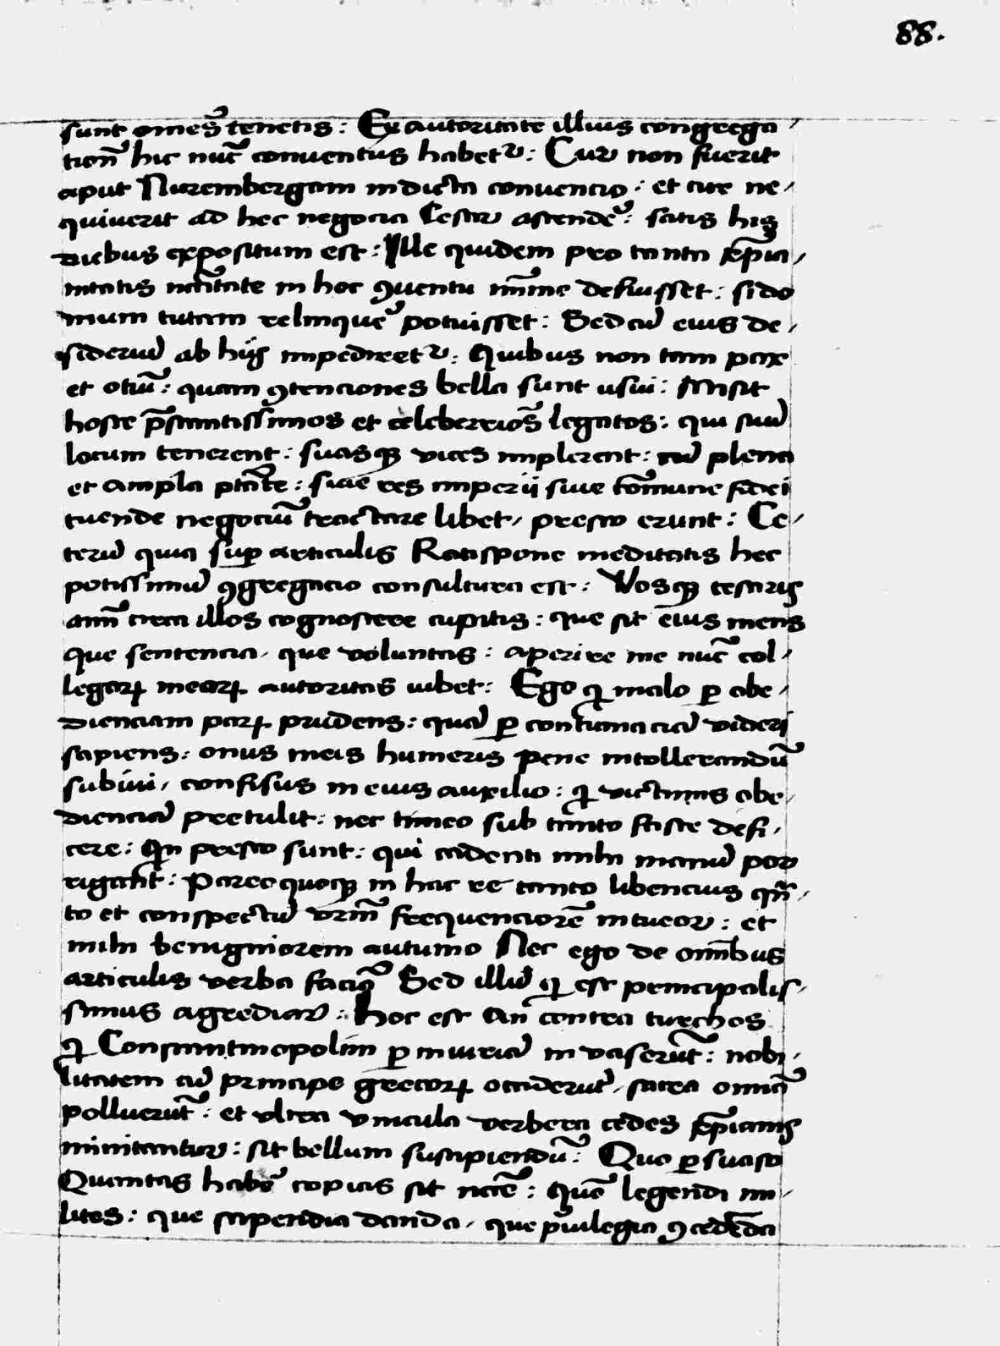 88.
sunt omẽs tenetis : Ex autoritate illius congrega-
tionẽ hic nũc conventus habet᷑ : Cur non fuerit
aput Nurembergam indicta convencio : et cur ne-
quiverit ad hec negocia Cesar ascendẽ : satis his
diebus expositum est : Ille quidem pro tanta xp̃ia-
nitatis nc̃itate in hoc ꝯventu mĩme defuisset : si do
mum tutam relinquẽ potuisset : Sed cũ eius de-
sideriũ ab hijs impediret᷑ : Quibus non tam pax
et otiũ : quam ꝯtenciones bella sunt usui : Misit
hosce p̃stantissimos et celeberrioẽs legatos : qui suũ
locum tenerent : suasqꝫ vices implerent : cũ plena
et ampla ptãte : sive res imperii sive cõmune fidei
tuende negociũ tractare libet, presto erunt : Ce-
terũ quia suꝑ articulis Ratispone meditatis hec
potissimũ ꝯgregacio consultura est : Vosqꝫ cesaris
aim̃ circa illos cognoscere cupitis : que sit eius mens
que sentencia, que voluntas : aperire me nũc col-
legaꝝ meoꝝ autoritas iubet : Ego ꝙ malo ꝑ obe-
dienciam paꝝ prudens : quã ꝑ contumaciã videri
sapiens : onus meis humeris pene intollerandũ
subivi, confisus in eius auxilio : ꝙ victimis obe-
dienciã pretulit : nec timeo sub tanto fasce defi-
cere : Qñ presto sunt : qui cadenti mihi manũ por
rigant : Pareo quoqꝫ in hac re tanto libencius qñ-
to et conspectũ vrm̃ frequencior̃e intueor : et
mihi benigniorem autumo Nec ego de om̃ibus
articulis verba faciã Sed illũ ꝙ est principalis-
simus agrediar : Hoc est An contra turchos
ꝙ Constantinopolim ꝑ iniuriã invaserũt : nobi-
litatem cũ principe grecoꝝ occiderũt, sacra omnia
polluerũt : et ultra vincula verbera cedes xp̃ianis
minitantur : sit bellum suscipiendũ : Quo ꝑsuaso
Quantas habẽ copias sit nc̃e : Quõ legendi mi-
lites : que stipendia danda, que p̃vilegia ꝯcedẽda